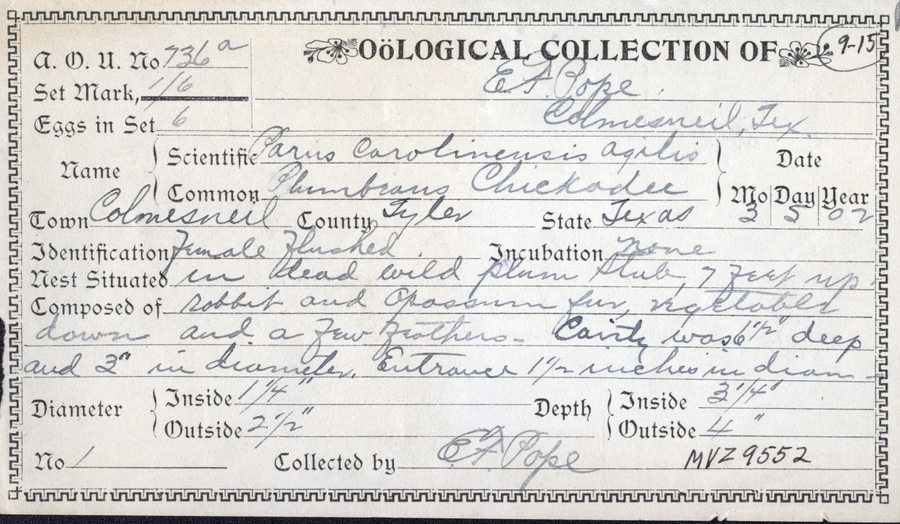 OöLOGICAL COLLECTION OF 9-15
A. O. U. No 736a E. F. Pope
Set Mark, 1/6 Colmesneil, Tex.
Eggs in Set 6
Name Scientific Parus Carolinensis agilis Date
Common Plumbeous Chickadee Mo Day Year
Town Colmesneil County Tyler State Texas 3 5 02
Identification Female Flushed Incubation none
Nest Situated in dead wild plum stub, 7 feet up.
Composed of rabbit and opossum fur, vegetable
down and a few feathers - Cavity was 6 1/2" deep
and 3" in diameter. Entrance 1 1/2 inches in diam-
Diameter Inside 1 1/4" Depth Inside 3 1/4"
Outside 2 1/2" Outside 4"
No 1 Collected by E F Pope MVZ 9552